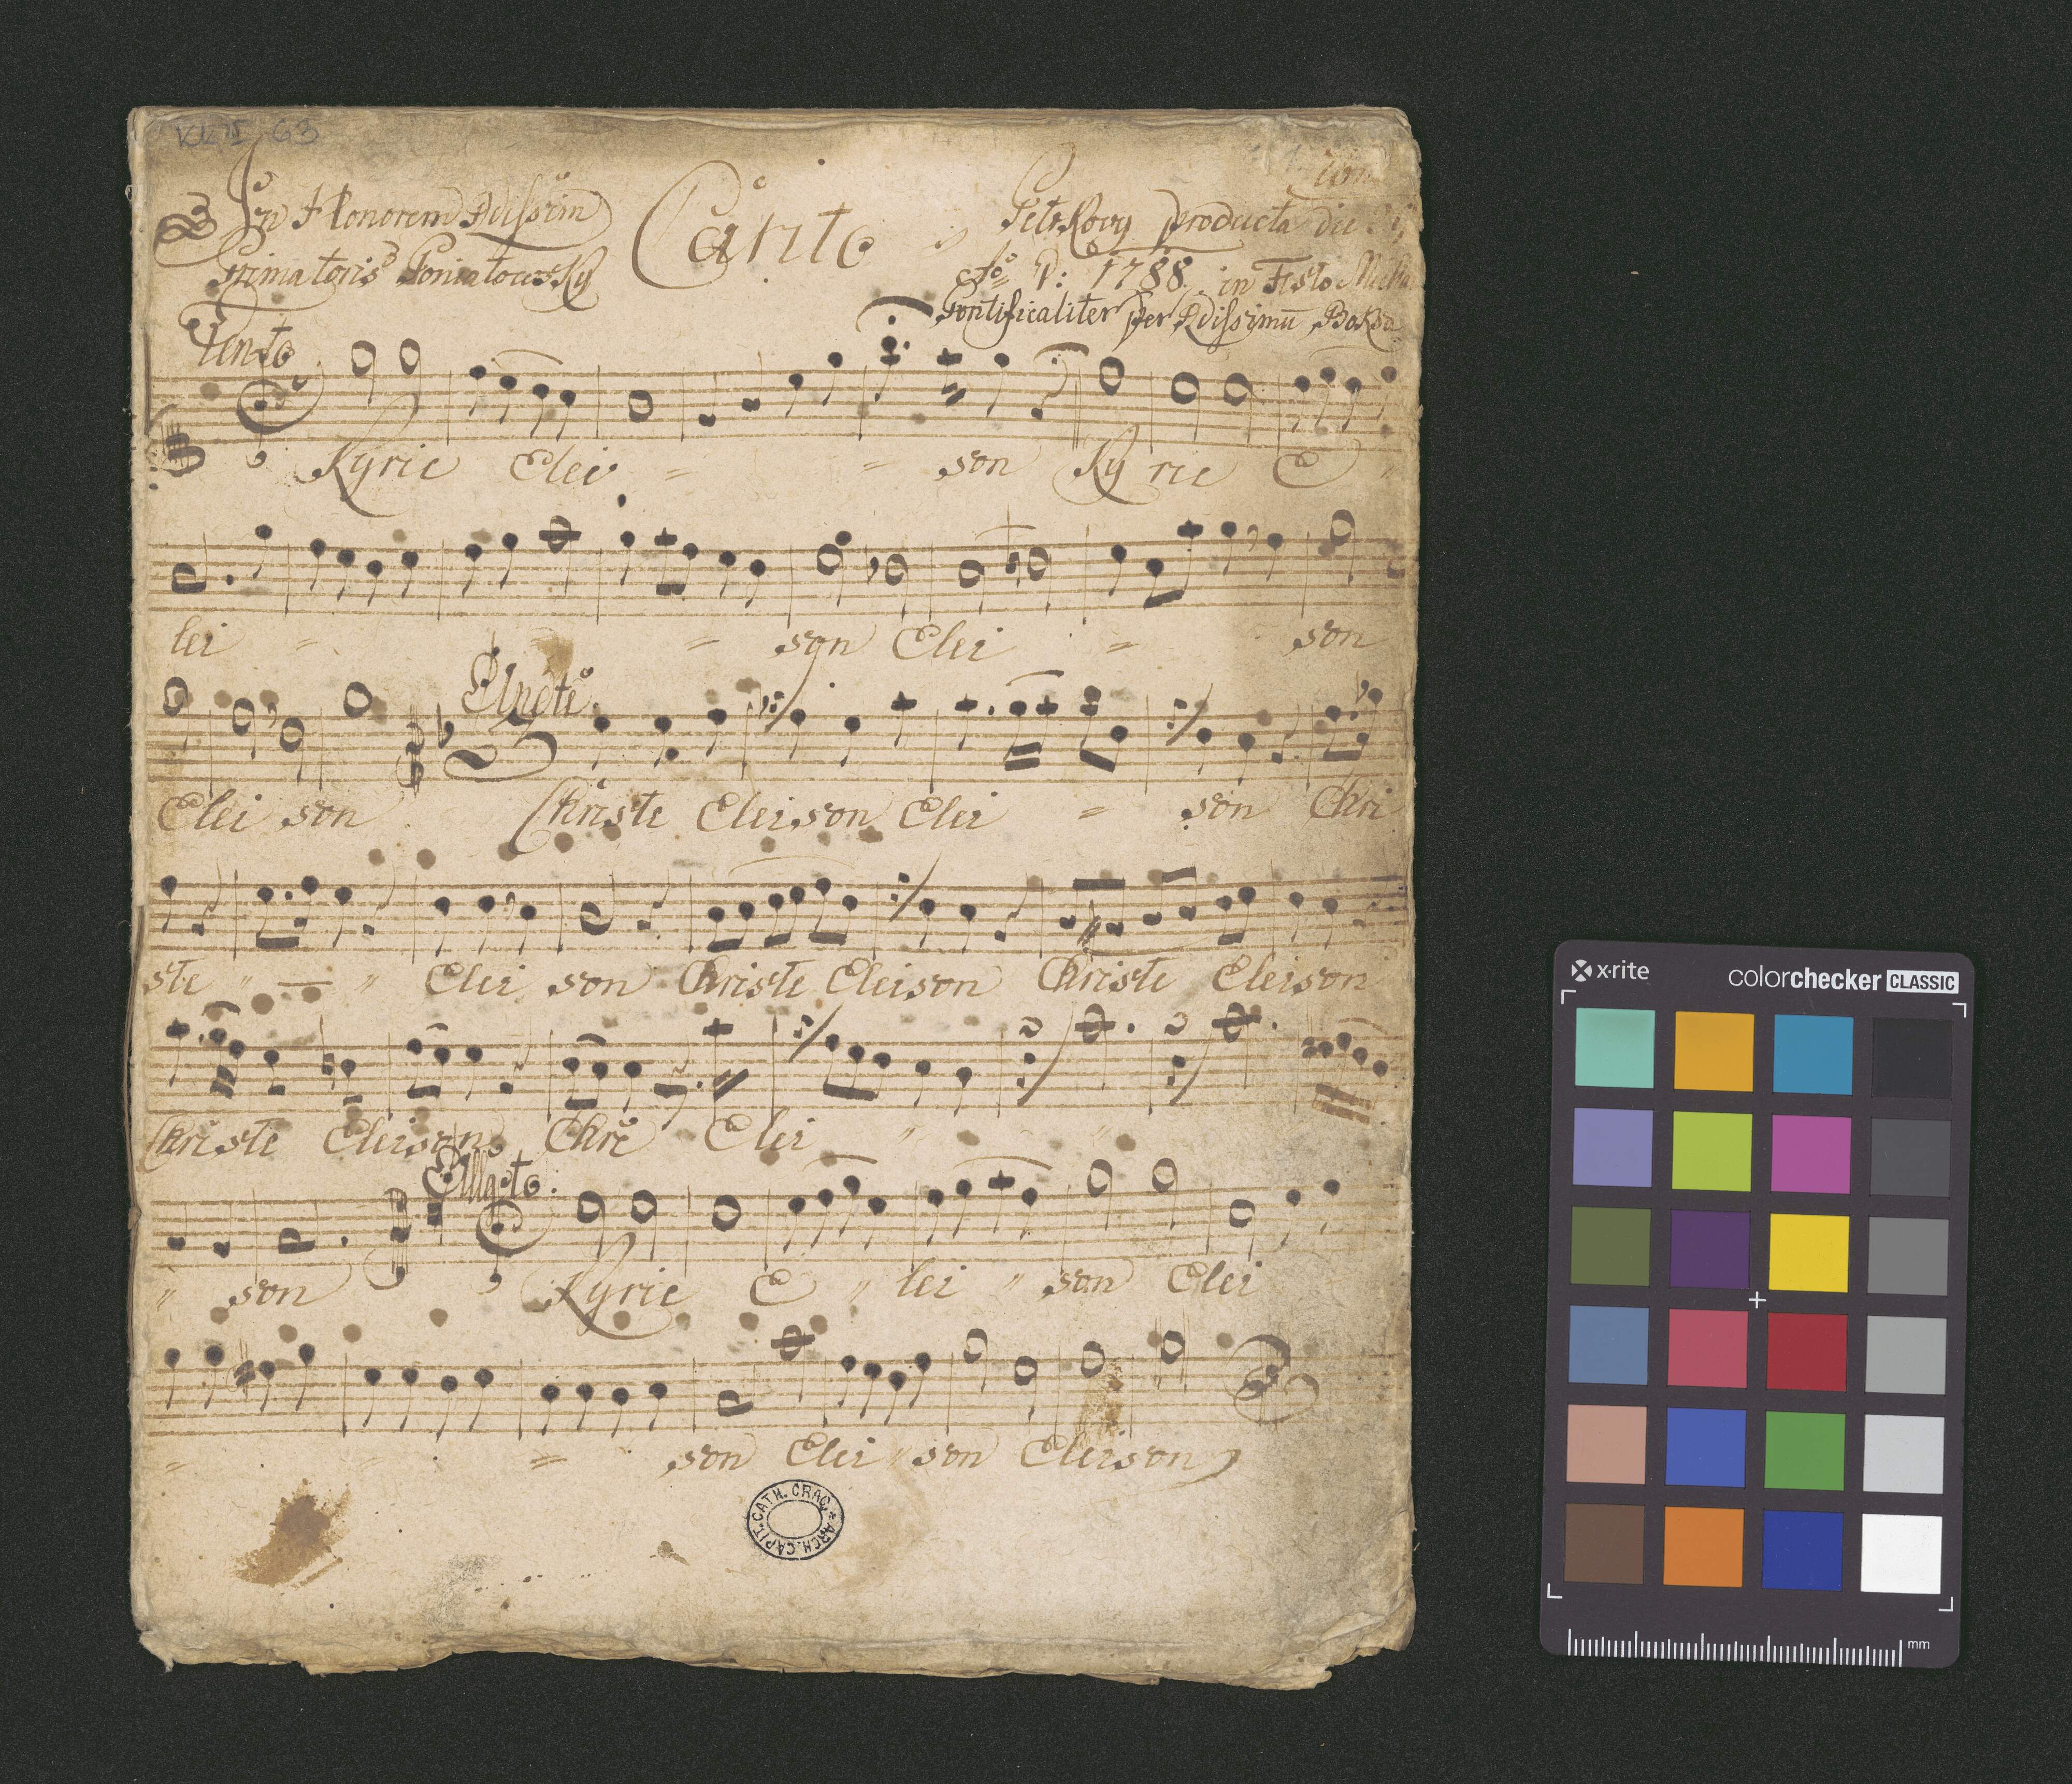 KK I, 63
In Honorem Rdissim
Primatoris Poniatowsky
Canto
Petrkovy producta die
Aō D: 1788. in Festo Micha
Pontificaliter per Rdissimū
Lento
Kyrie Elei = = son Ky rie E "
lei = = son Elei = son
Andte
Elei son Christe Eleison Elei = son Chri
ste " — " Elei son Christe Eleison Christe Eleison
Christe Eleison Chrē Elei " " "
Allgto.
" son Kyrie E " lei " son Elei
= = = son Elei " son Eleison
ARCH. CAPIT. CATH. CRAC.
x·rite
colorchecker CLASSIC
mm